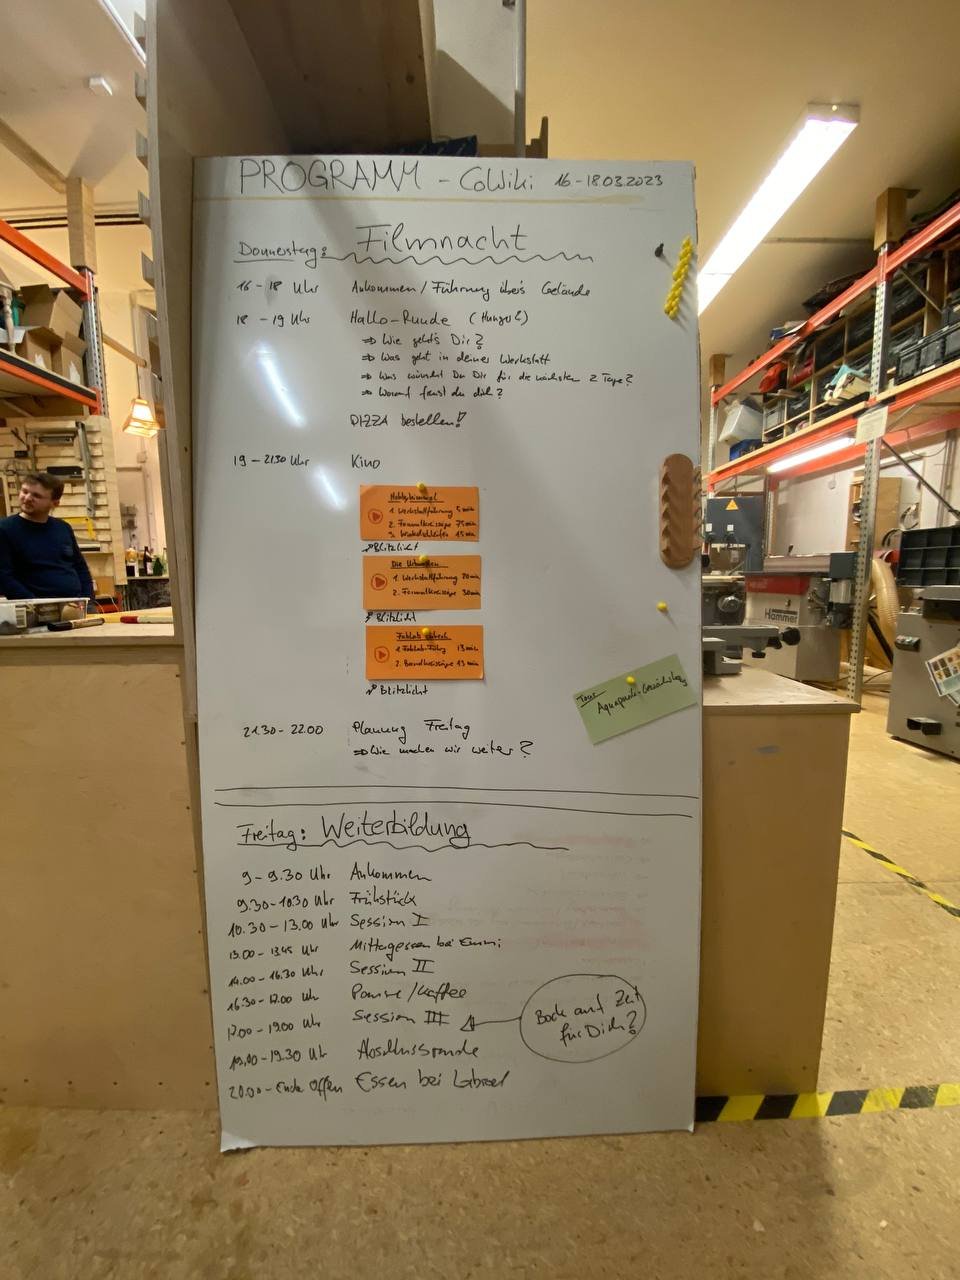 PROGRAMM - CoWiki 16-18.03.2023
Donnerstag: Filmnacht
16-18 Uhr Ankommen/Führung über's Gelände
18-19 Uhr Hallo-Runde (Hunger!)
⇒ Wie geht's Dir?
⇒ Was geht in deiner Werkstatt
⇒ Was wünscht Du Dir für die nächsten 2 Tage?
⇒ Worauf freust du dich?
PIZZA bestellen!
19-21.30 Uhr Kino
Hobbyhimmel
1. Werkstattführung 5min
2. Formatkreissäge 75min
3. Winkelschleifen 15min
Blitzlicht
Die Urbanauten
1. Werkstattführung 20min
2. Formatkreissäge 30min
Blitzlicht
FabLab Lübeck
1. FabLab-Führg 13min
2. 13min
Blitzlicht
Tour
21.30-22.00 Planung Freitag
⇒ Wie machen wir weiter?
Freitag: Weiterbildung
9-9.30 Uhr Ankommen
9.30-10.30 Uhr Frühstück
10.30-13.00 Uhr Session I
13.00-13.45 Uhr Mittagessen bei Emmi
14.00-16.30 Uhr Session II
16.30-17.00 Uhr Pause/Kaffee
17.00-19.00 Uhr Session III
Bock auf Zeit
für Dich?
19.00-19.30 Uhr Abschlussrunde
20.00-Ende Offen Essen bei
Hammer